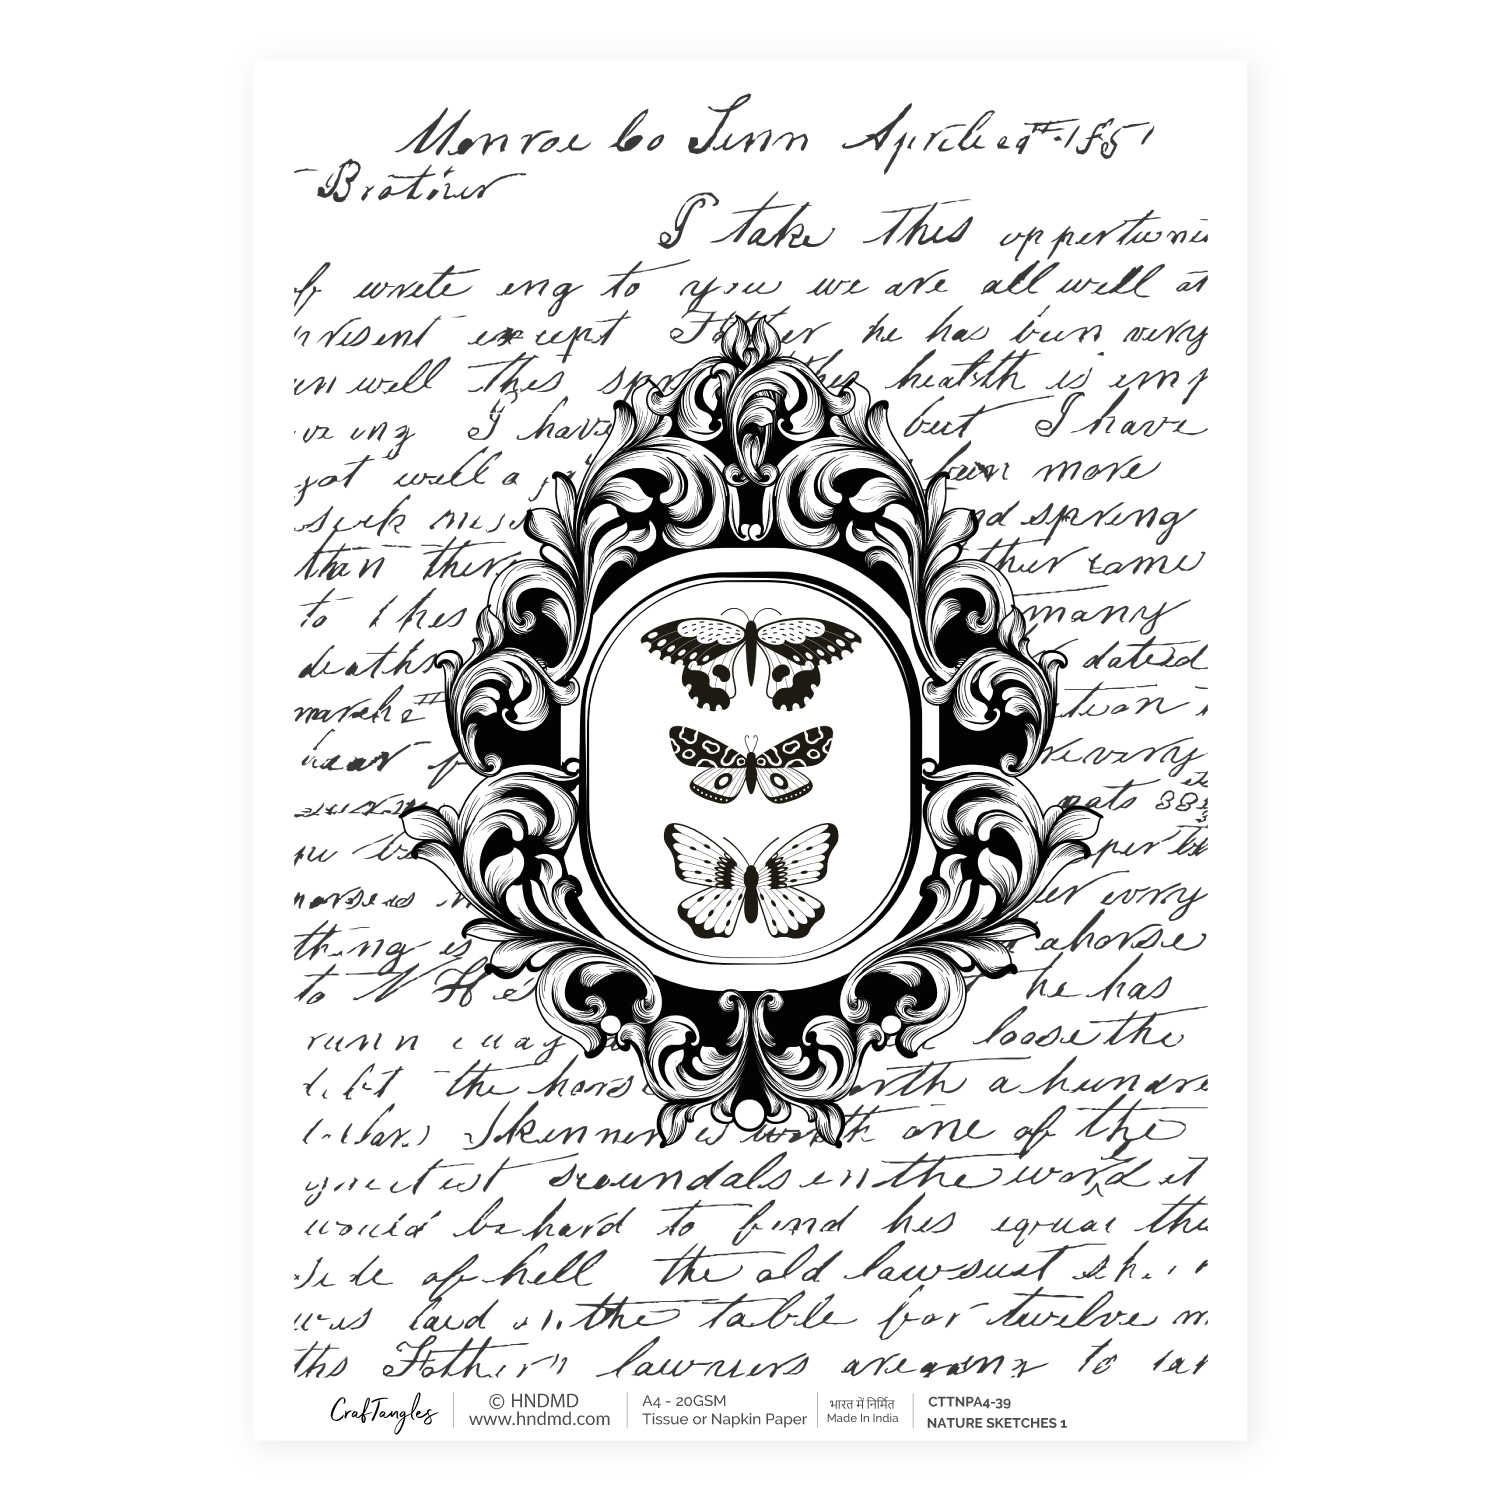 Monroe Co Tenn April 29th 1851
Brother
I take this opportuni
of wreteeng to you we are all well at
present except Father he has bun very
un well this spr his health is imp
roveing I have but I have
got well a bun more
seck ness nd spreng
than ther ther came
to thes many
deaths dated
marche tt ation
hear f very
pats
per
horses ur every
thing is a horse
to N he has
runn away loose the
left the horse orth a hundre
dolar.) Skinner is worth one of the
greatest scoundals in the world it
would be hard to find hes equal the
side of hell the old lawsuet
was laid on the table for twelve m
ths Father lawuers are to
CrafTangles
© HNDMD
www.hndmd.com
A4 - 20GSM
Tissue or Napkin Paper
भारत में निर्मित
Made In India
CTTNPA4-39
NATURE SKETCHES 1